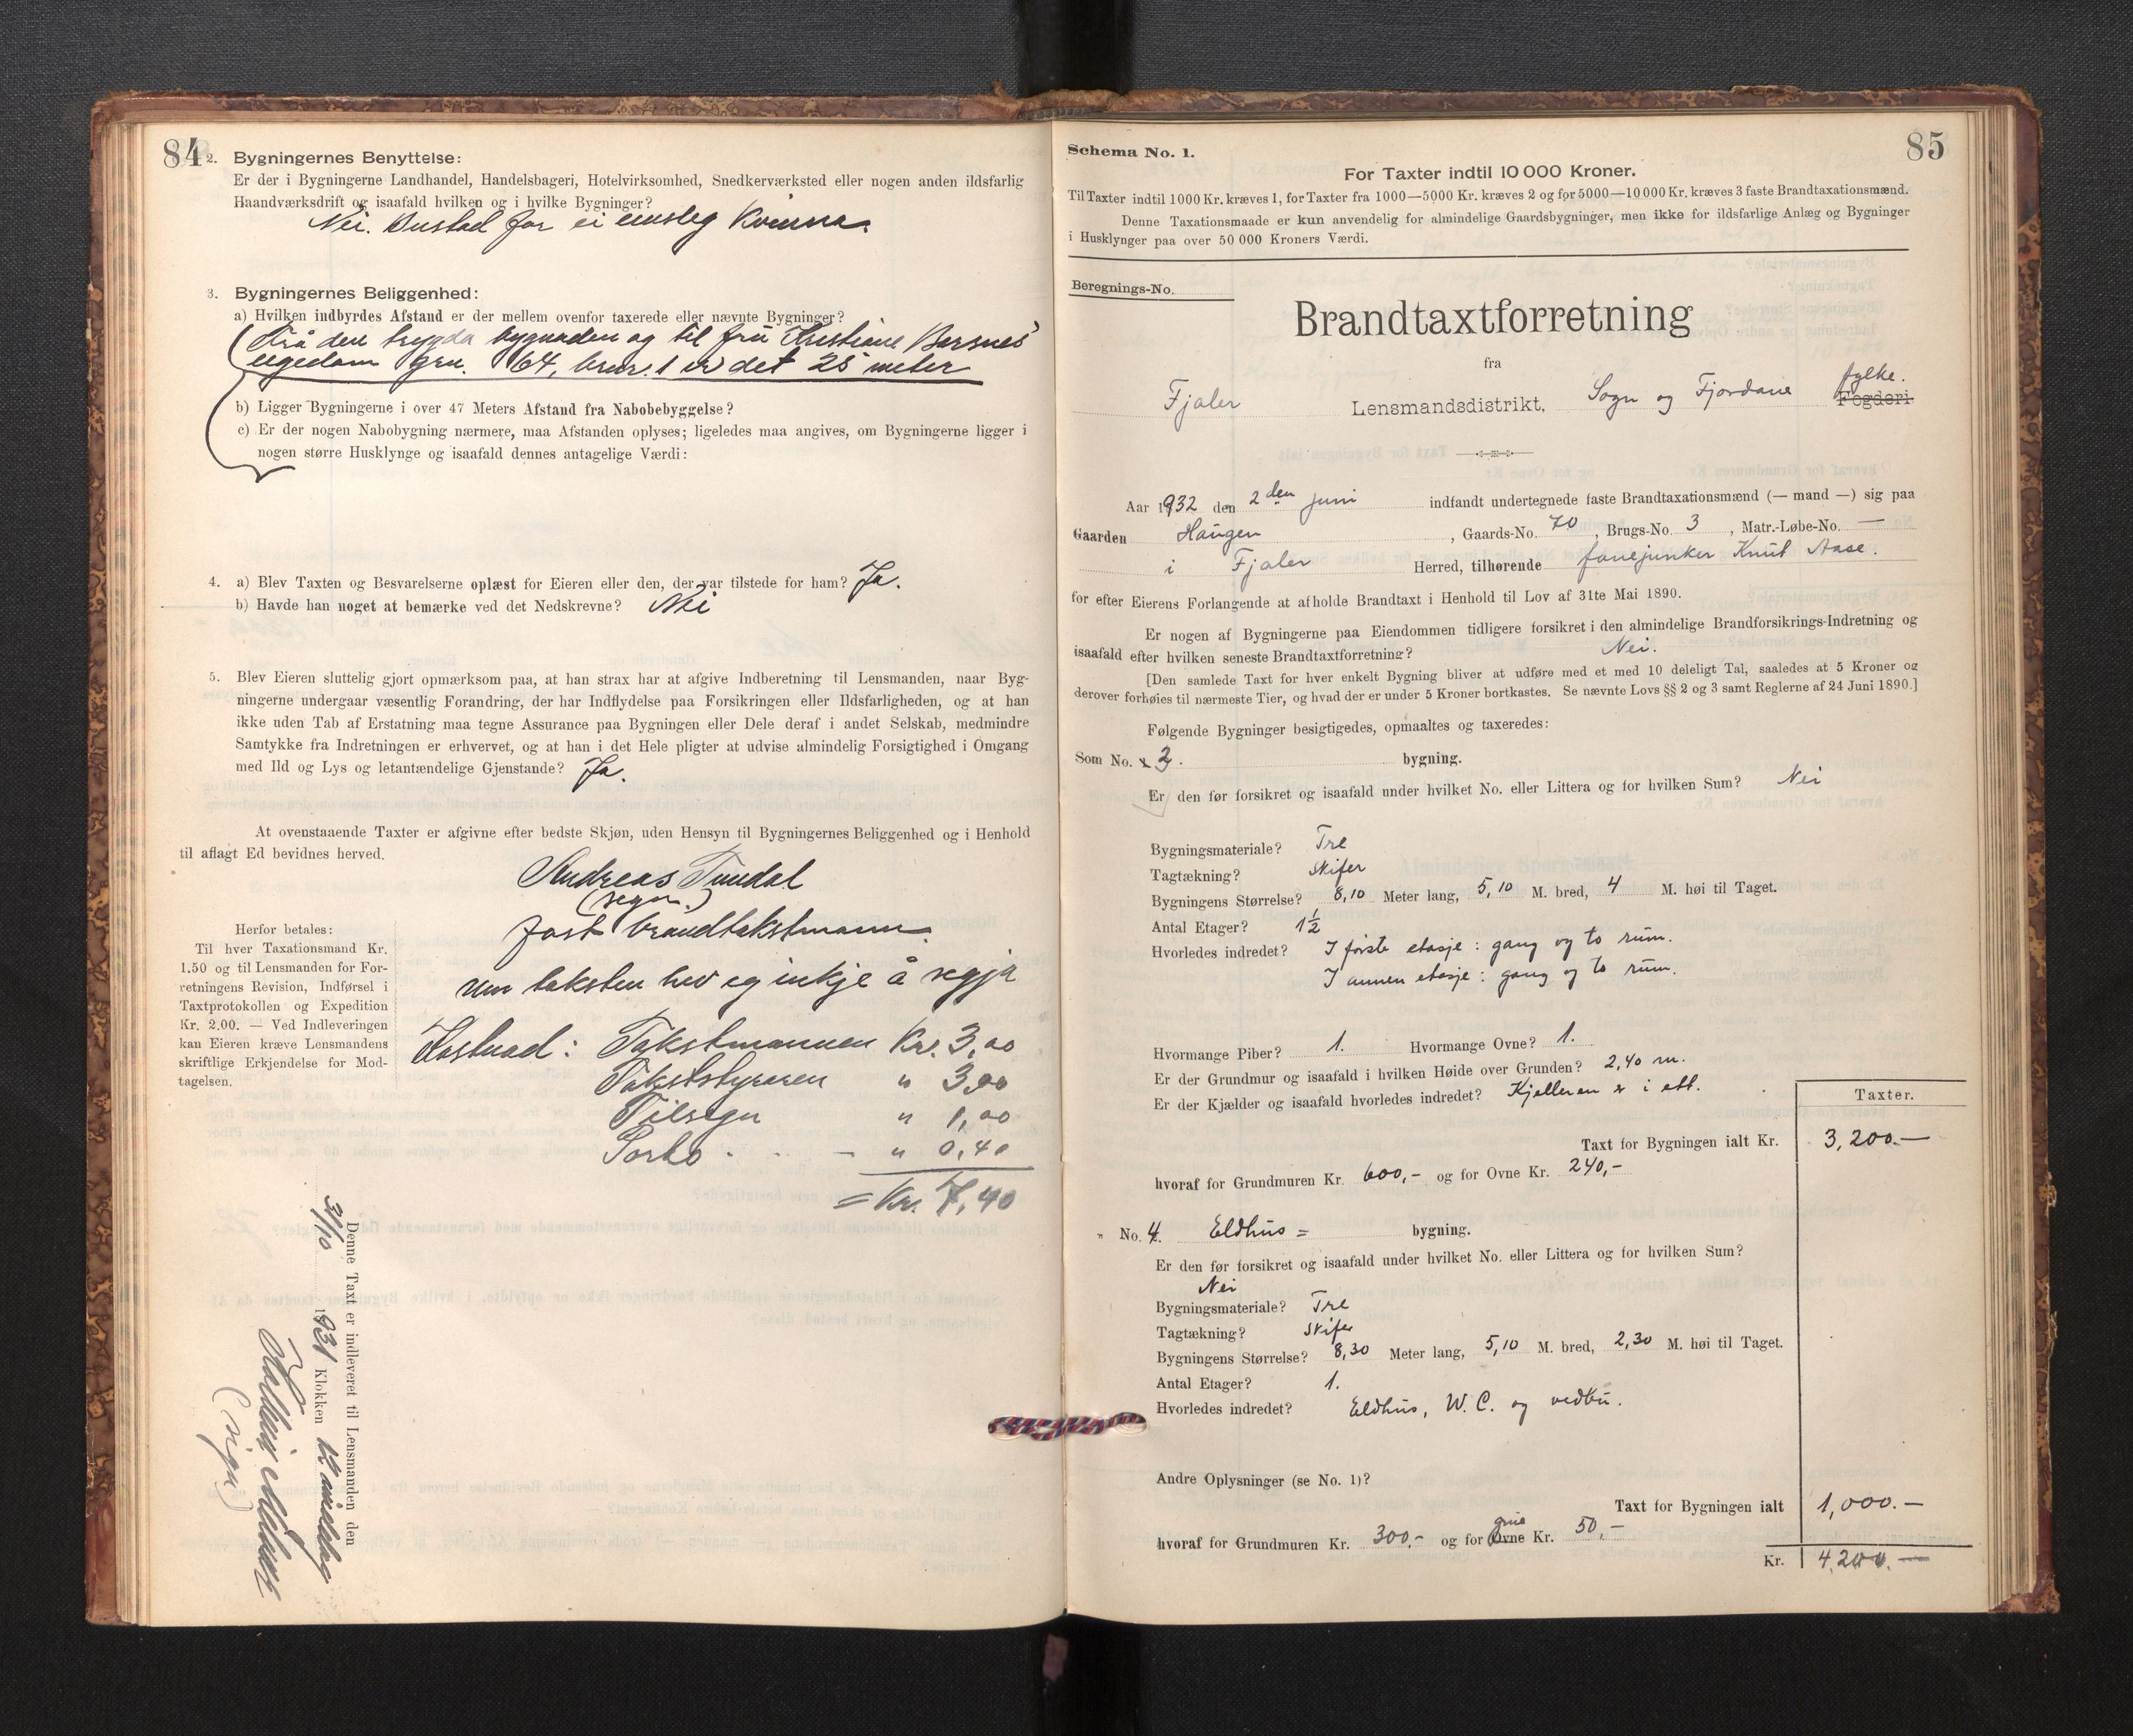 84
2. Bygningernes Benyttelse:
Er der i Bygningerne Landhandel, Handelsbageri, Hotelvirksomhed, Snedkerværksted eller nogen anden ildsfarlig
Haandværksdrift og isaafald hvilken og i hvilke Bygninger?
Nei. Bustad for ei einsleg Kvinna.
3. Bygningernes Beliggenhed:
a) Hvilken indbyrdes Afstand er der mellem ovenfor taxerede eller nævnte Bygninger?
Frå den trygda bygnaden og til fru Kristiane Barsnes'
eigedom gnr. 64, brnr. 1 er det 25 meter
b) Ligger Bygningerne i over 47 Meters Afstand fra Nabobebyggelse?
c) Er der nogen Nabobygning nærmere, maa Afstanden oplyses; ligeledes maa angives, om Bygningerne ligger i
nogen større Husklynge og isaafald dennes antagelige Værdi:
4. a) Blev Taxten og Besvarelserne oplæst for Eieren eller den, der var tilstede for ham? Ja.
b) Havde han noget at bemærke ved det Nedskrevne? Nei
5. Blev Eieren sluttelig gjort opmærksom paa, at han strax har at afgive Indberetning til Lensmanden, naar Byg-
ningerne undergaar væsentlig Forandring, der har Indflydelse paa Forsikringen eller Ildsfarligheden, og at han
ikke uden Tab af Erstatning maa tegne Assurance paa Bygningen eller Dele deraf i andet Selskab, medmindre
Samtykke fra Indretningen er erhvervet, og at han i det Hele pligter at udvise almindelig Forsigtighed i Omgang
med Ild og Lys og letantændelige Gjenstande? Ja.
At ovenstaaende Taxter er afgivne efter bedste Skjøn, uden Hensyn til Bygningernes Beliggenhed og i Henhold
til aflagt Ed bevidnes herved.
Andreas Tundal
(segn.)
fast brandtakstmann.
um taksten hev eg inkje å segja
Herfor betales:
Til hver Taxationsmand Kr.
1.50 og til Lensmanden for For-
retningens Revision, Indførsel i
Taxtprotokollen og Expedition
Kr. 2.00. — Ved Indleveringen
kan Eieren kræve Lensmandens
skriftlige Erkjendelse for Mod-
tagelsen.
Kostnad: Takstmannen Kr. 3,00
Takststyraren " 3,00
Tilsegn " 1,00
Porto - - - " 0,40
= Kr. 7,40
Denne Taxt er indleveret til Lensmanden den
3/10 1931 Klokken 12 middag
(sign)
85
Schema No. 1.
For Taxter indtil 10 000 Kroner.
Til Taxter indtil 1000 Kr. kræves 1, for Taxter fra 1000—5000 Kr. kræves 2 og for 5000—10 000 Kr. kræves 3 faste Brandtaxationsmænd.
Denne Taxationsmaade er kun anvendelig for almindelige Gaardsbygninger, men ikke for ildsfarlige Anlæg og Bygninger
i Husklynger paa over 50 000 Kroners Værdi.
Beregnings-No.
Brandtaxtforretning
fra
Fjaler Lensmandsdistrikt, Sogn og Fjordane fylke.
Fogderi
Aar 1932 den 2den juni indfandt undertegnede faste Brandtaxationsmænd (— mand —) sig paa
Gaarden Haugen, Gaards-No. 70, Brugs-No. 3, Matr.-Løbe-No. —
i Fjaler Herred, tilhørende fanejunker Knut Aase.
for efter Eierens Forlangende at afholde Brandtaxt i Henhold til Lov af 31te Mai 1890.
Er nogen af Bygningerne paa Eiendommen tidligere forsikret i den almindelige Brandforsikrings-Indretning og
isaafald efter hvilken seneste Brandtaxtforretning? Nei.
[Den samlede Taxt for hver enkelt Bygning bliver at udføre med et med 10 deleligt Tal, saaledes at 5 Kroner og
derover forhøies til nærmeste Tier, og hvad der er under 5 Kroner bortkastes. Se nævnte Lovs §§ 2 og 3 samt Reglerne af 24 Juni 1890.]
Følgende Bygninger besigtigedes, opmaaltes og taxeredes:
Som No. 3. bygning.
Er den før forsikret og isaafald under hvilket No. eller Littera og for hvilken Sum? Nei
Bygningsmateriale? Tre
Tagtækning? Skifer
Bygningens Størrelse? 8,10 Meter lang, 5,10 M. bred, 4 M. høi til Taget.
Antal Etager? 1½
Hvorledes indredet? I første etasje: gang og to rum.
I annen etasje: gang og to rum.
Hvormange Piber? 1. Hvormange Ovne? 1.
Er der Grundmur og isaafald i hvilken Høide over Grunden? 2,40 m.
Er der Kjælder og isaafald hvorledes indredet? Kjelleren er i ett.
Taxter.
Taxt for Bygningen ialt Kr. 3,200.—
hvoraf for Grundmuren Kr. 600,- og for Ovne Kr. 240,-
" No. 4. Eldhus = bygning.
Er den før forsikret og isaafald under hvilket No. eller Littera og for hvilken Sum?
Nei
Bygningsmateriale? Tre
Tagtækning? Skifer
Bygningens Størrelse? 8,30 Meter lang, 5,10 M. bred, 2,30 M. høi til Taget.
Antal Etager? 1.
Hvorledes indredet? Eldhus, W.C. og vedbu.
Andre Oplysninger (se No. 1)?
Taxt for Bygningen ialt 1,000.—
hvoraf for Grundmuren Kr. 300,- og for grue Ovne Kr. 50,-
Kr. 4,200.—